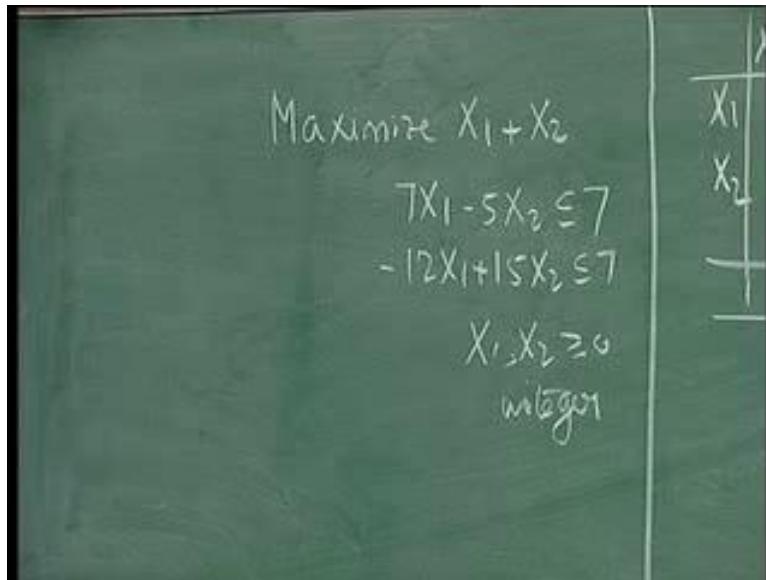 Maximize X₁ + X₂
7X₁ - 5X₂ ≤ 7
-12X₁ + 15X₂ ≤ 7
X₁, X₂ ≥ 0
integer
X₁
X₂